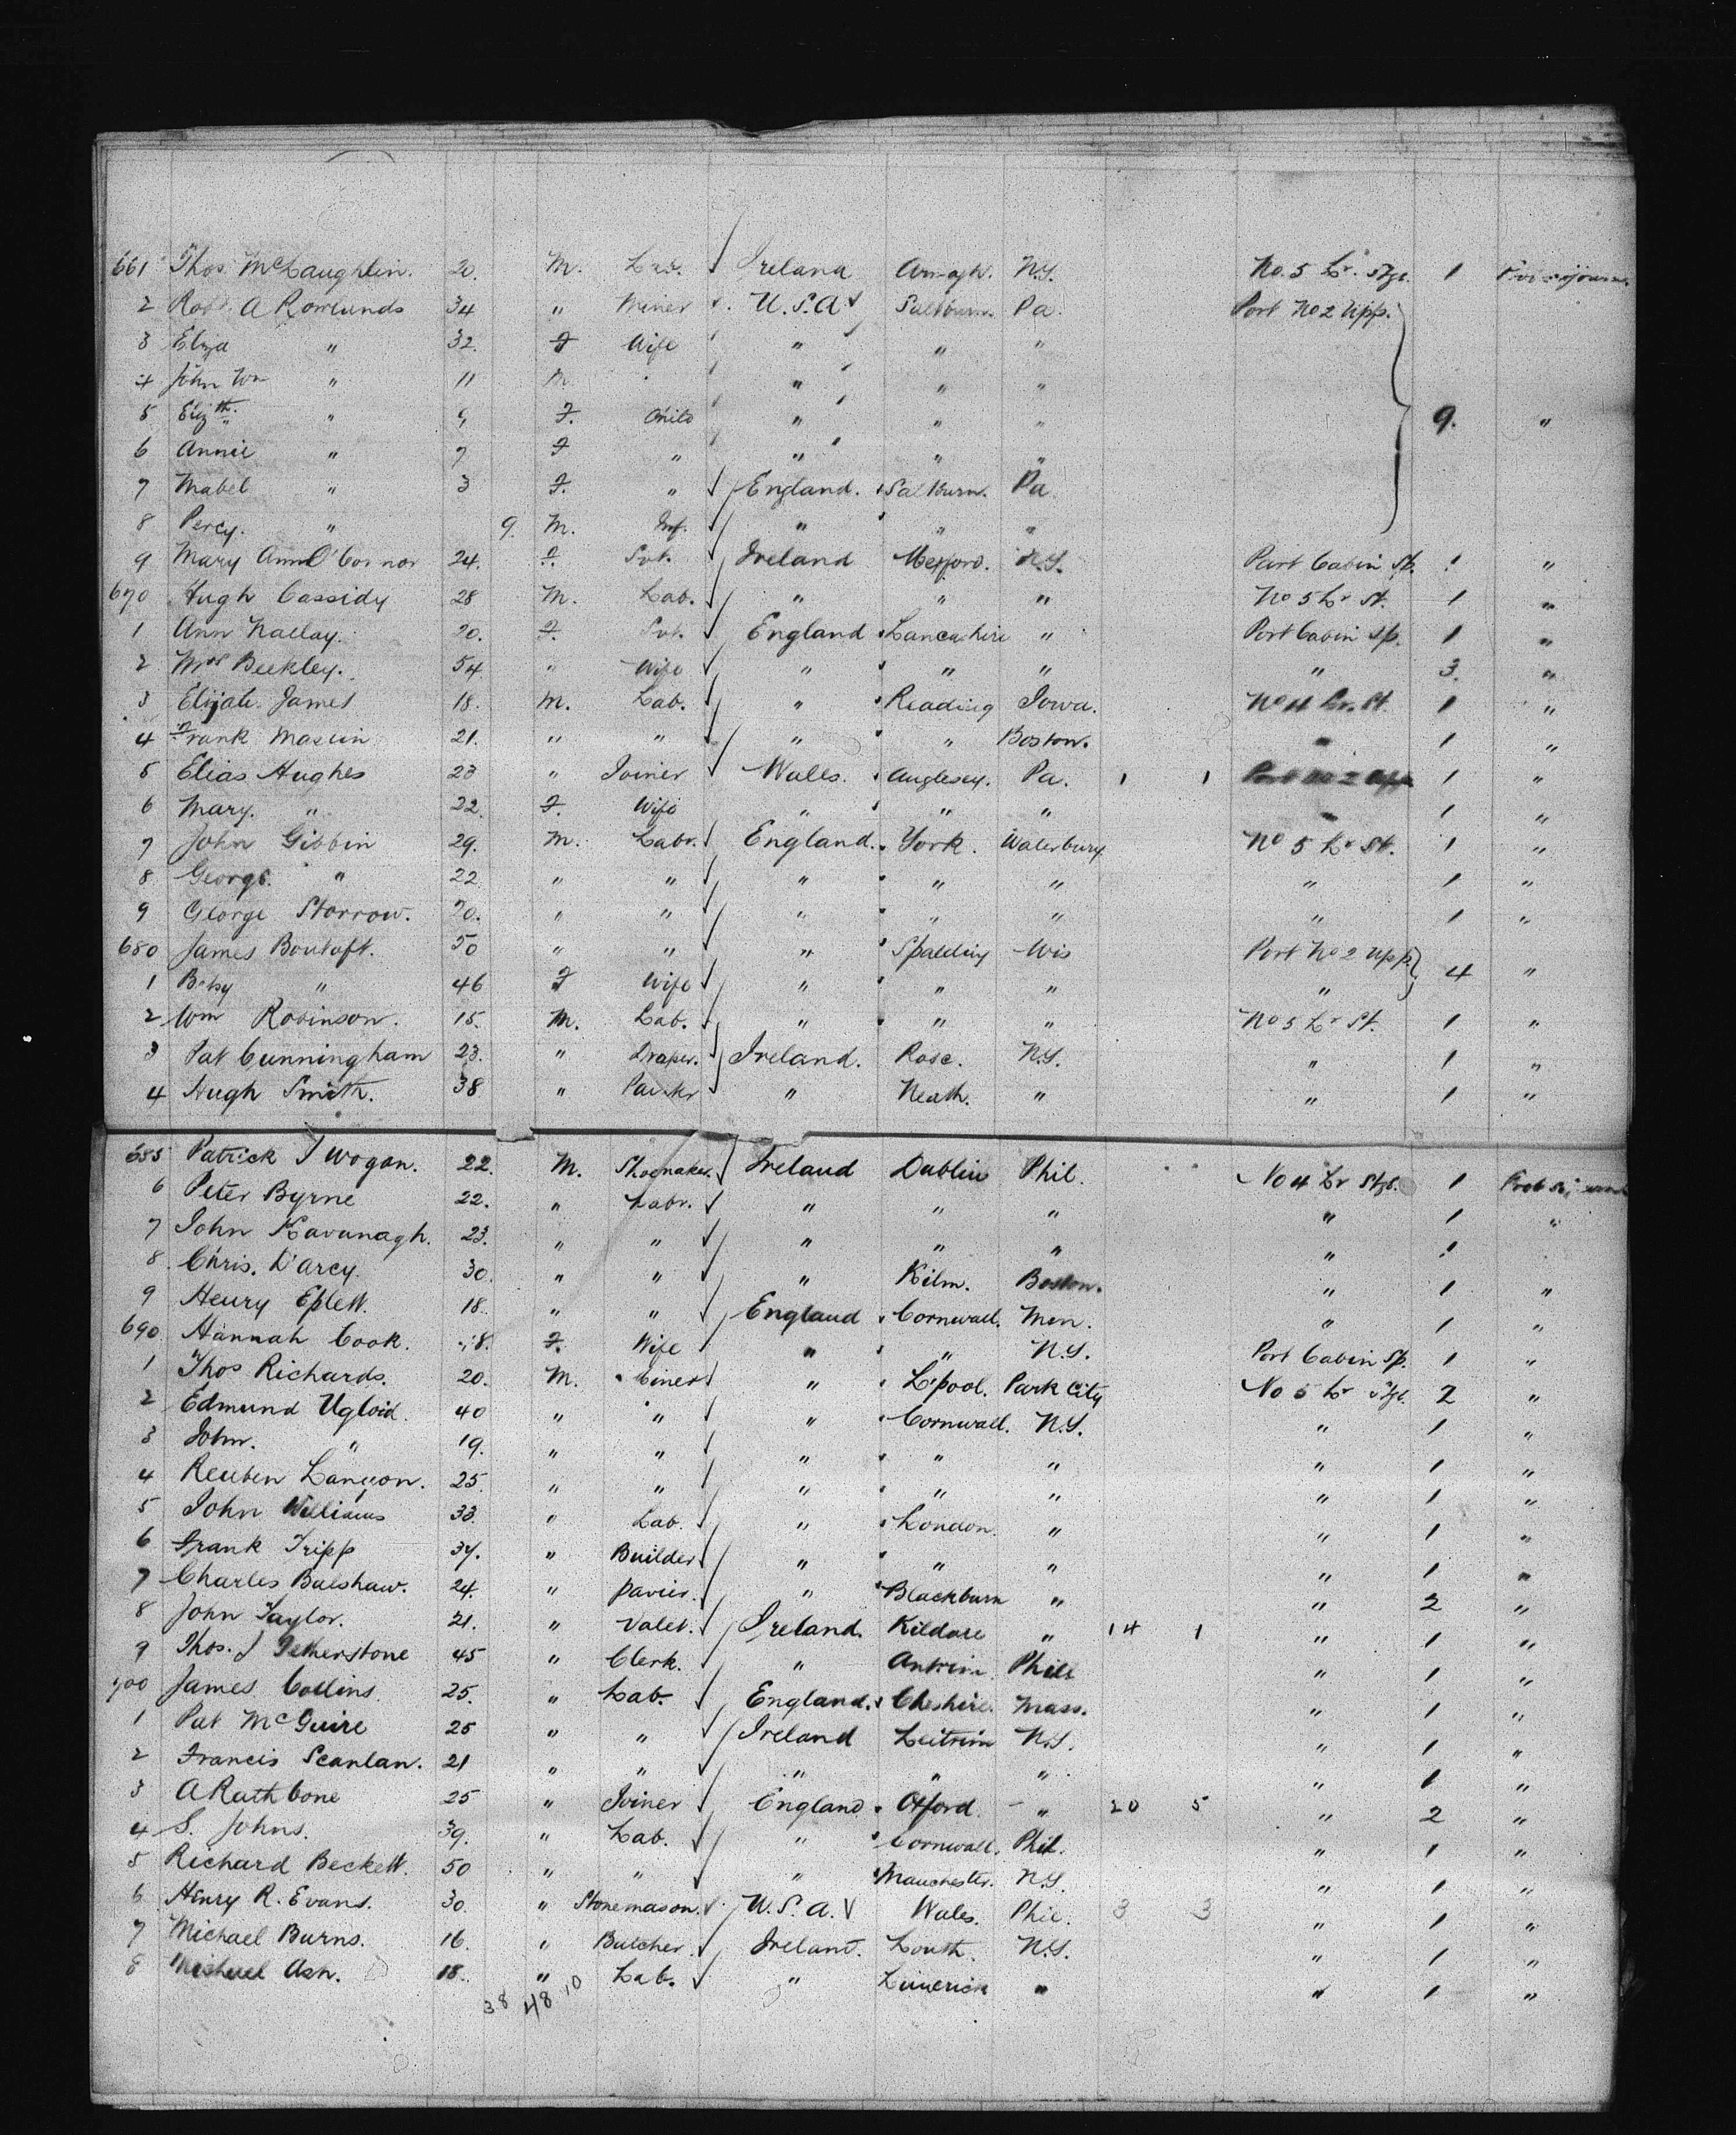 661 Thos McLaughlin. 20. M. Lab. Ireland Armagh. N.Y. No. 5 Lr. Stge. 1
2 Robt. A Rowlunds 34 " Miner U.S.A. Saltburn. Pa. Port No 2 Upp.
3 Eliza " 32. F Wife " " "
4 John Wm " 11 M. " " "
5 Elizth. " 9 F. Child " " " 9. "
6 Annie " 7 F " " " "
7 Mabel " 3 F. " England. Saltburn. Pa.
8 Percy. " 9. M. Inf. " " "
9 Mary Ann O'Connor 24. F. Svt. Ireland Wexford. N.Y. Port Cabin Sp. 1 "
670 Hugh Cassidy 28 M. Lab. " " " No 5 Lr St. 1 "
1 Ann Nallay. 20. F. Svt. England Lancashire " Port Cabin Sp. 1 "
2 Mrs Beekley. 54 " Wife " " " " 3. "
3 Elijah. James 18. M. Lab. " Reading Iowa. No 4 Lr. St. 1 "
4 Frank Maslin 21. " " " " Boston. " 1 "
5 Elias Hughes 23 " Joiner Wales. Anglesey. Pa. 1 1 Port No 2 Upp 1 "
6 Mary. " 22. F. Wife " " " " 1 "
7 John Gibbin 29. M. Labr. England. York. Waterbury No 5 Lr St. 1 "
8 George. " 22 " " " " " " 1 "
9 George Storrow. 20. " " " " " " 1 "
680 James Boutoft. 50 " " " Spalding Wis Port No 2 Upp
1 Betsy " 46 F Wife " " " " 4 "
2 Wm Robinson. 15. M. Lab. " " " No 5 Lr St. 1 "
3 Pat Cunningham 23. " Draper. Ireland. Rosc. N.Y. " 1 "
4 Hugh Smith. 38 " Painter " Meath. " " 1 "
685 Patrick J Wogan. 22. M. Shoemaker. Ireland Dublin Phil. No 4 Lr Stge. 1
6 Peter Byrne 22. " Labr. " " " " 1 "
7 John Kavanagh. 23. " " " " " " 1
8 Chris. D'arcy. 30. " " " Kilm. Boston. " 1 "
9 Henry Eplett. 18. " " England Cornwall. Min. " 1 "
690 Hannah Cook. F. Wife " " N.Y. Port Cabin Sp. 1 "
1 Thos Richards. 20. M. Miner " L'pool. Park City No 5 Lr Stge. 2 "
2 Edmund Ugloid. 40 " " " Cornwall. N.Y. " 1 "
3 John. " 19. " " " " " " 1 "
4 Reuben Lanyon. 25. " " " " " " 1 "
5 John Williams 33. " Lab. " London. " " 1 "
6 Frank Tripp 34. " Builder " " " " 1 "
7 Charles Balshaw. 24. " Pavier. " Blackburn " " 2 "
8 John Taylor. 21. " Valet. Ireland. Kildare " 14 1 " 1 "
9 Thos. J Fetherstone 45 " Clerk. " Antrim Phill " 1 "
700 James Collins. 25. " Lab. England. Cheshire. Mass. " 1 "
1 Pat McGuire 25 " " Ireland Leitrim N.Y. " 1 "
2 Francis Scanlan. 21 " " " " " " 1 "
3 A Rathbone 25 " Joiner England Oxford. " 20 5 " 2 "
4 S. Johns. 39. " Lab. " Cornwall. Phil. " 1 "
5 Richard Beckett. 50 " " " Manchester. N.Y. " 1 "
6 Henry R. Evans. 30. " Stonemason. U.S.A. Wales. Phil. 3 3 " 1 "
7 Michael Burns. 16. " Butcher. Ireland. Louth. N.Y. " 1 "
8 Michael Ash. 18. " Lab. " Limerick " " 1 "
38 48 10